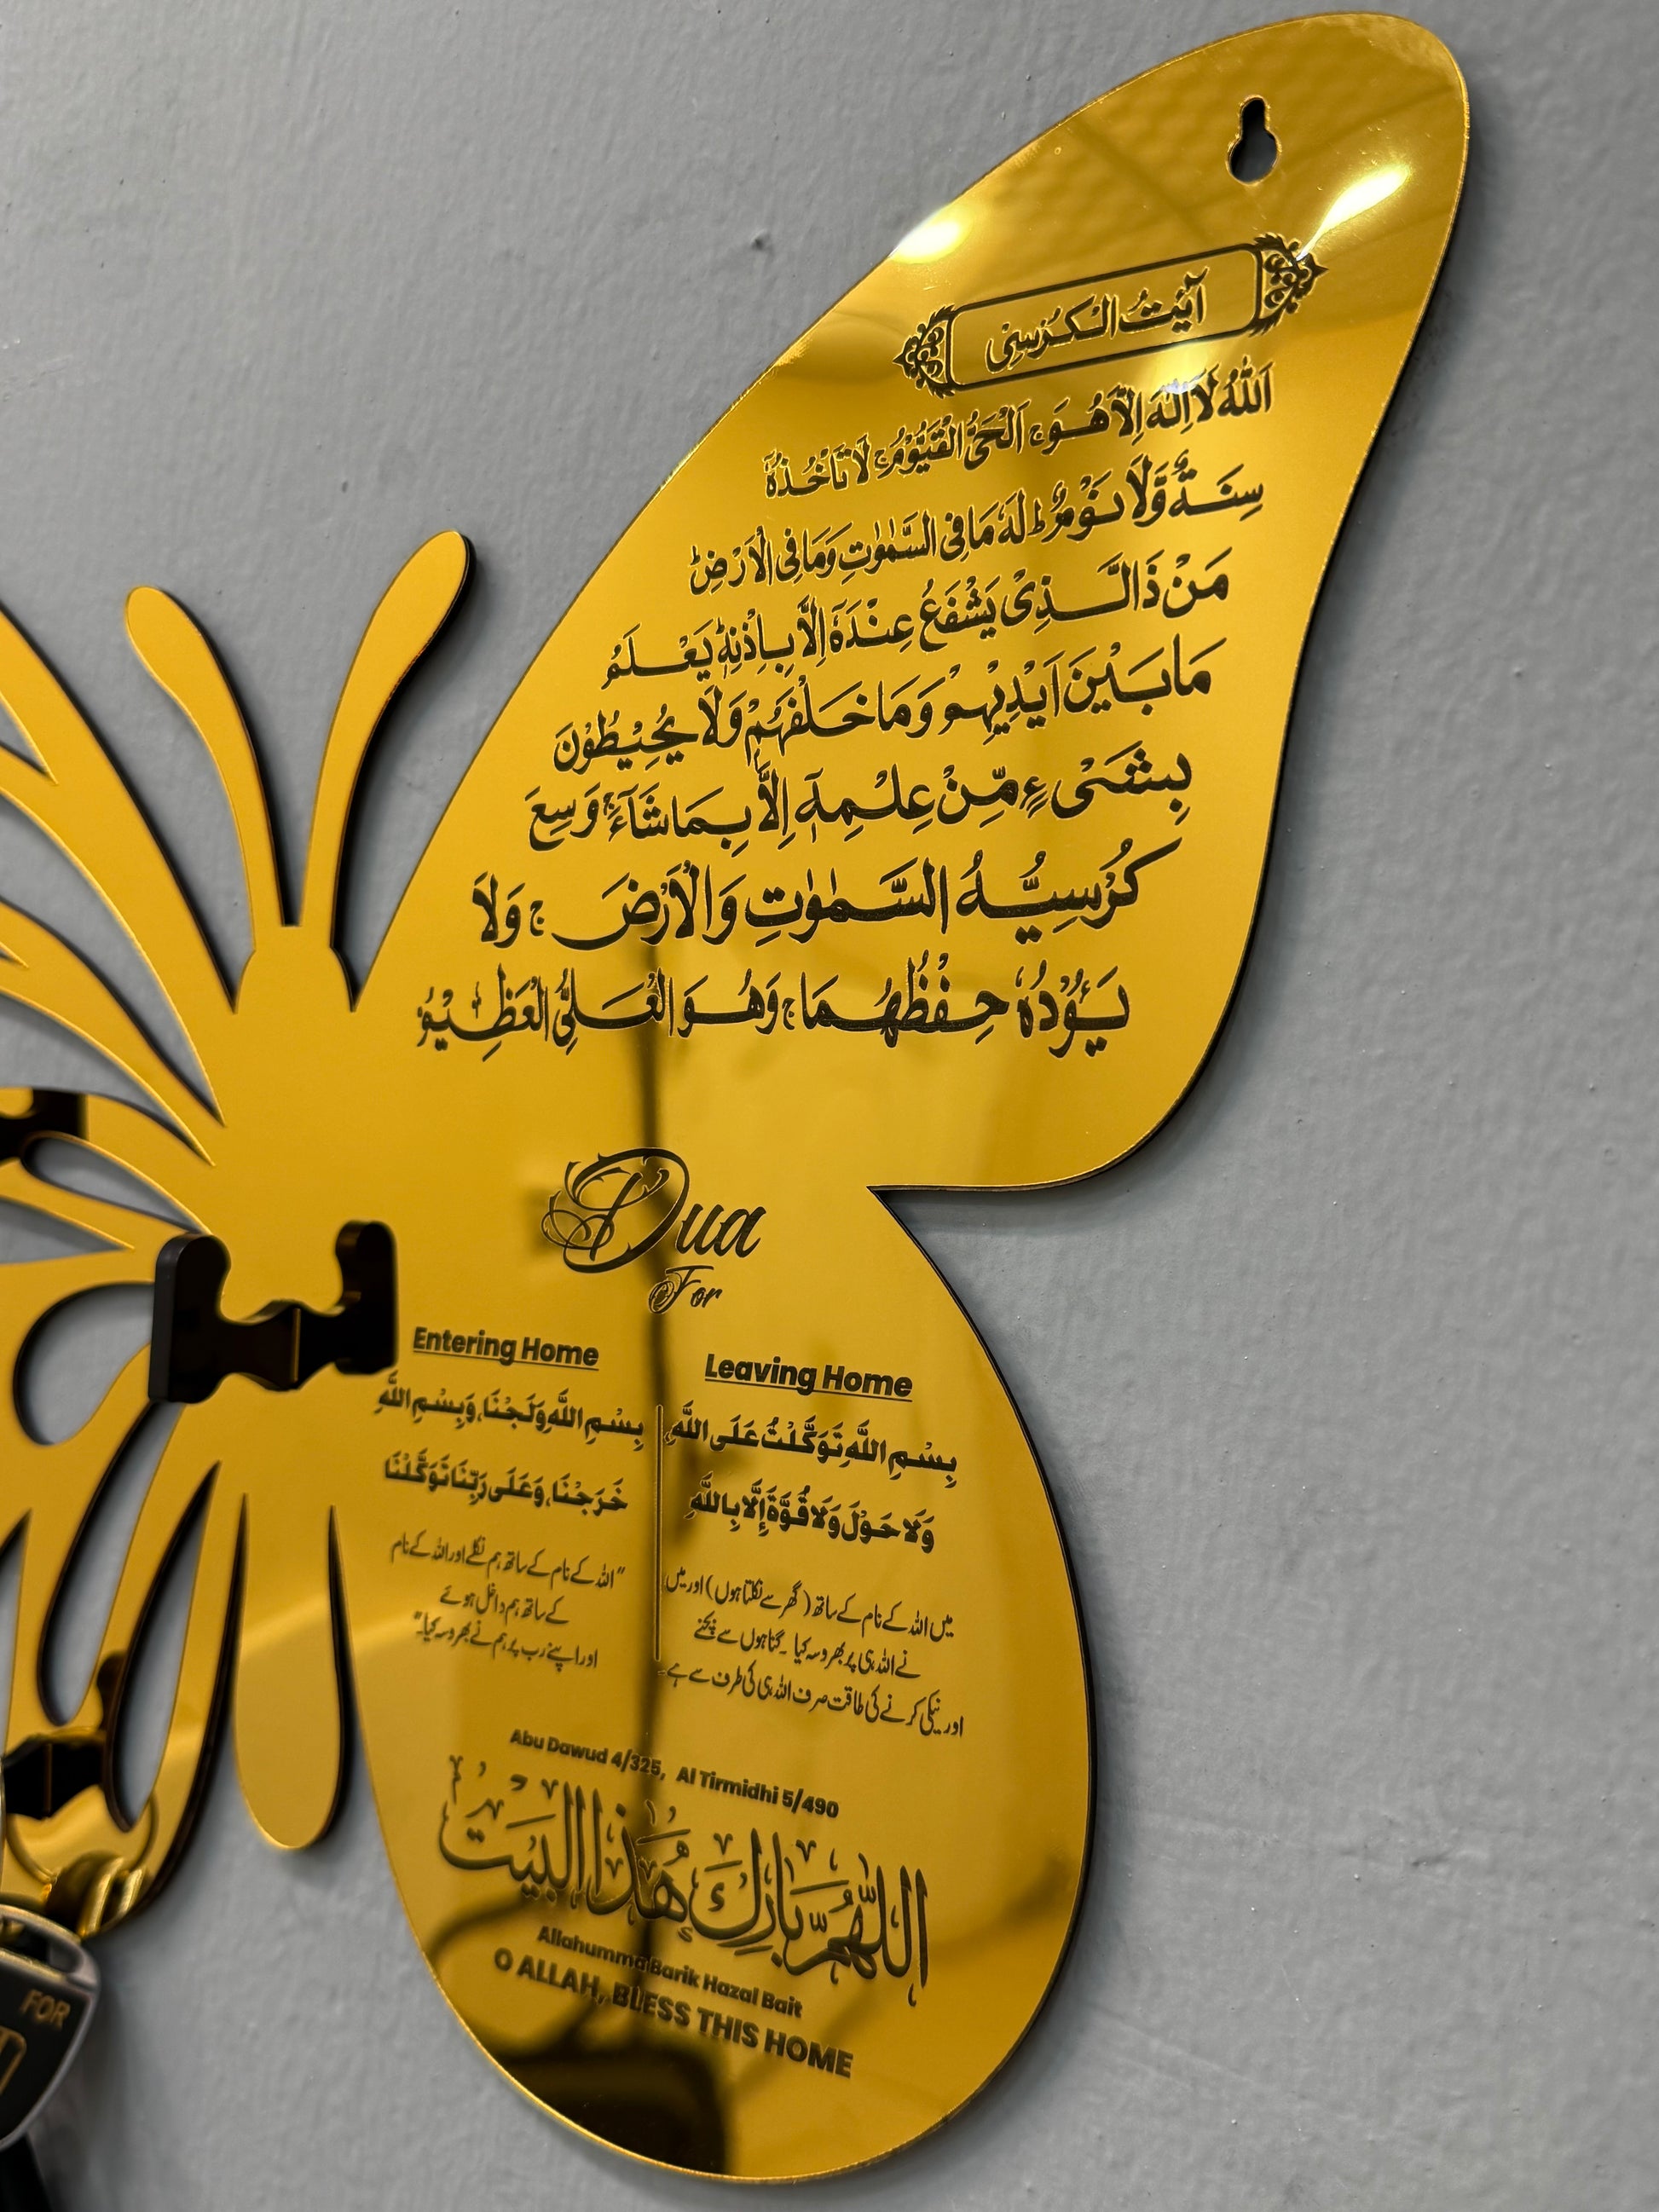 آيٰتُ الْكُرْسِىْ
اَللّٰهُ لَاۤ اِلٰهَ اِلَّا هُوَ ۚ اَلْحَىُّ الْقَيُّوْمُ ۚ لَا تَاْخُذُهٗ
سِنَةٌ وَّلَا نَوْمٌ ؕ لَهٗ مَا فِى السَّمٰوٰتِ وَمَا فِى الْاَرْضِ ؕ
مَنْ ذَا الَّذِىْ يَشْفَعُ عِنْدَهٗۤ اِلَّا بِاِذْنِهٖ ؕ يَعْلَمُ
مَا بَيْنَ اَيْدِيْهِمْ وَمَا خَلْفَهُمْ ۚ وَلَا يُحِيْطُوْنَ
بِشَىْءٍ مِّنْ عِلْمِهٖۤ اِلَّا بِمَا شَآءَ ۚ وَسِعَ
كُرْسِيُّهُ السَّمٰوٰتِ وَالْاَرْضَ ۚ وَلَا
يَـُٔوْدُهٗ حِفْظُهُمَا ۚ وَهُوَ الْعَلِىُّ الْعَظِيْمُ
Dua
For
Entering Home
بِسْمِ اللَّهِ وَلَجْنَا، وَبِسْمِ اللَّهِ
خَرَجْنَا، وَعَلَى رَبِّنَا تَوَكَّلْنَا
"اللہ کے نام کے ساتھ ہم نکلے اور اللہ کے نام
کے ساتھ ہم داخل ہوئے
اور اپنے رب پر ہم نے بھروسہ کیا۔"
Leaving Home
بِسْمِ اللَّهِ تَوَكَّلْتُ عَلَى اللَّهِ،
وَلَا حَوْلَ وَلَا قُوَّةَ إِلَّا بِاللَّهِ
میں اللہ کے نام کے ساتھ (گھر سے نکلتا ہوں) اور میں
نے اللہ ہی پر بھروسہ کیا ۔ گناہوں سے بچنے
اور نیکی کرنے کی طاقت صرف اللہ ہی کی طرف سے ہے۔
Abu Dawud 4/325, Al Tirmidhi 5/490
اللَّهُمَّ بَارِكْ هٰذَا الْبَيْتَ
Allahumma Barik Hazal Bait
O ALLAH, BLESS THIS HOME
FOR